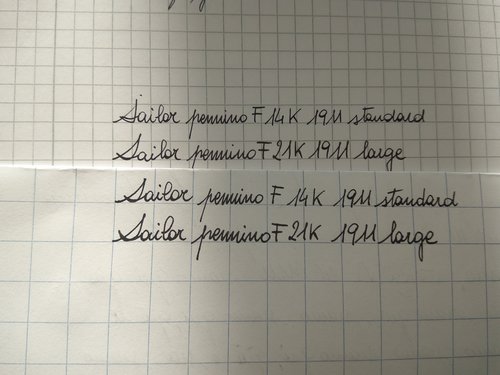 Sailor pennino F 14K 1911 standard
Sailor pennino F 21K 1911 large
Sailor pennino F 14K 1911 standard
Sailor pennino F 21K 1911 large